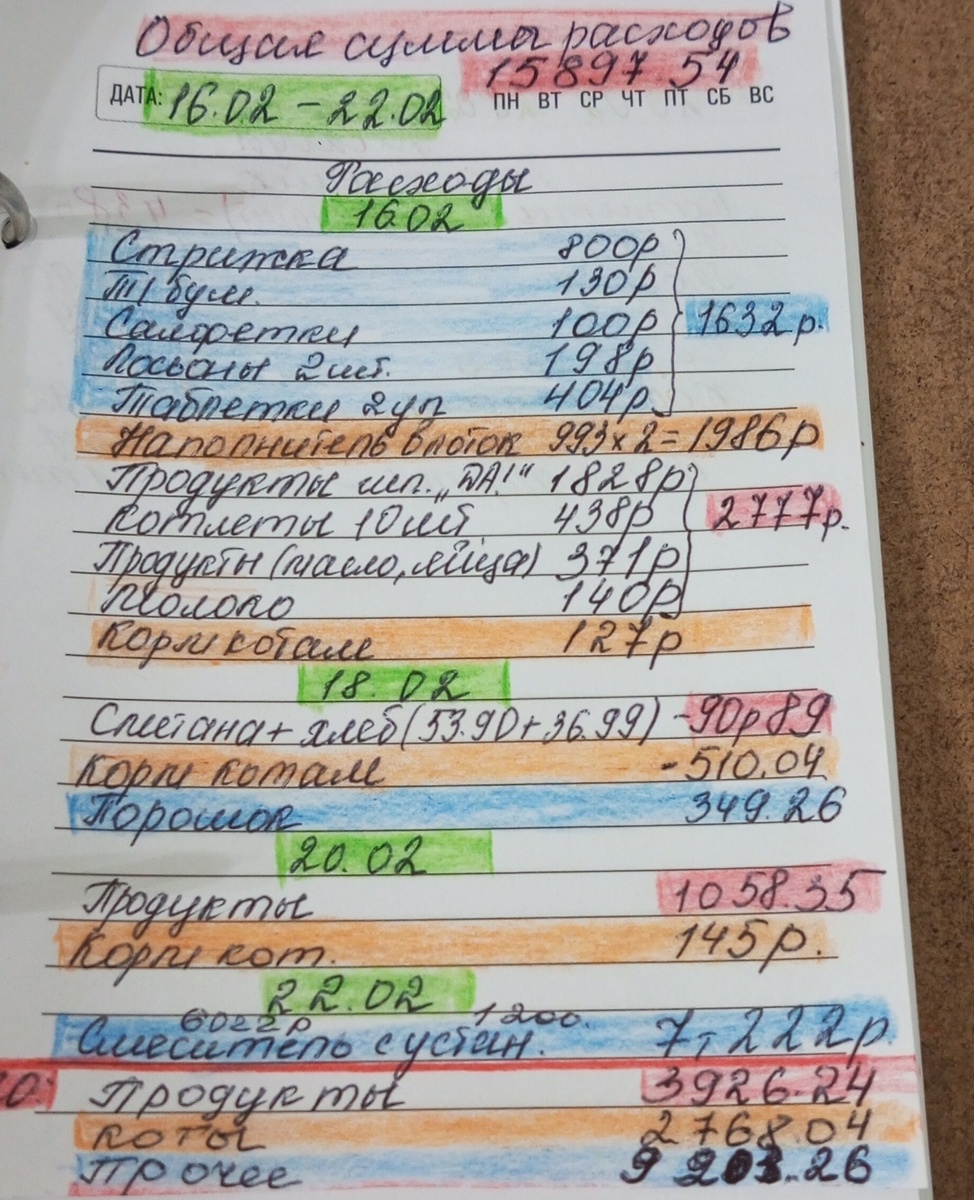 Общая суммы расходов
15897 54
ДАТА: 16.02 - 22.02 ПН ВТ СР ЧТ ПТ СБ ВС
Расходы
16.02
Стрижка 800р
Т/бум. 130р
Салфетки 100р
Лосьоны 2шт. 198р
Таблетки 2уп 404р
1632р.
Наполнитель в лоток 993х2=1986р
Продукты маг. „ДА!" 1828р
Котлеты 10шт 438р
2777р.
Продукты (масло, яйца) 371р
Молоко 140р
Корм котам 127р
18.02
Сметана + хлеб (53.90+36.99) -90р89
Корм котам -510.04
Порошок 349.26
20.02
Продукты 1058.35
Корм кот. 145р.
22.02
6022р 1200.
Смеситель с устан. 7,222р.
Продукты 3926.24
Коты 2768.04
Прочее 9203.26